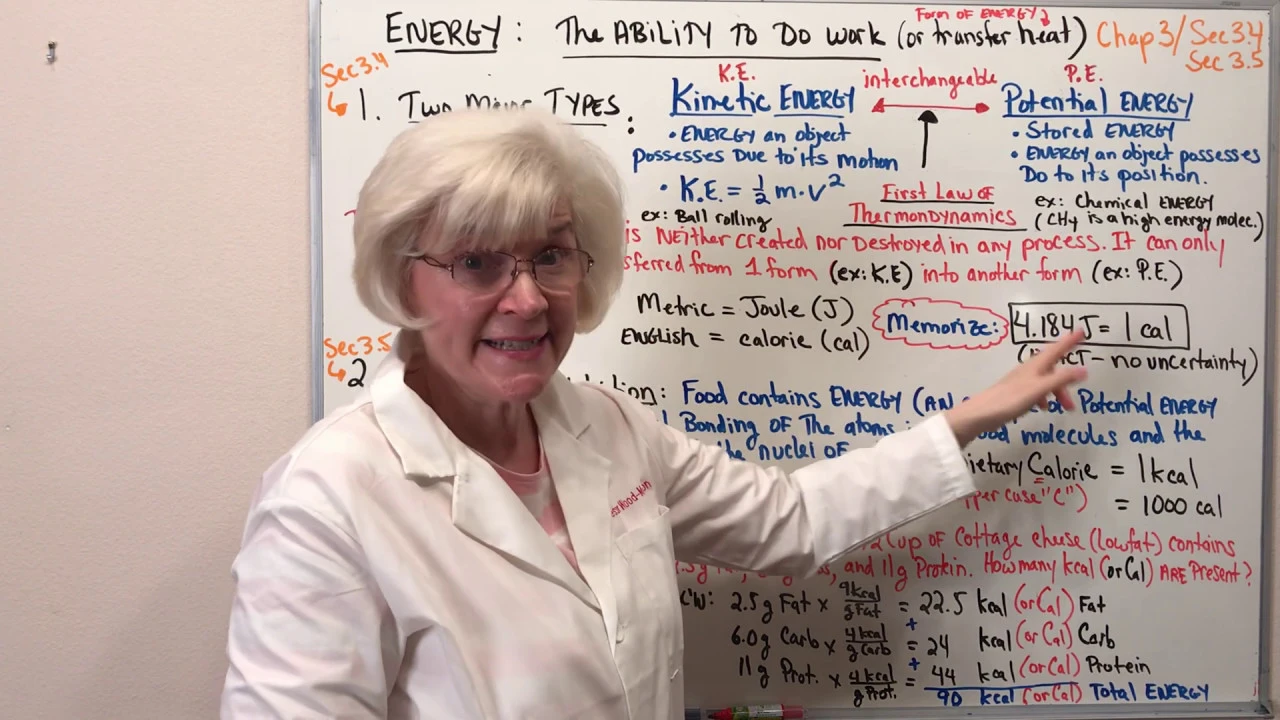 Form of ENERGY
ENERGY: The ABILITY TO DO WORK (or transfer heat)
Chap 3/Sec 3.4
Sec 3.5
Sec 3.4
1. Two Major TYPES:
K.E.
Kinetic ENERGY
• ENERGY an object
possesses Due to its motion
• K.E. = ½ m·v²
ex: Ball rolling
interchangeable
First Law of
ThermoNDynamics
P.E.
Potential ENERGY
• Stored ENERGY
• ENERGY an object possesses
Do to its position.
ex: Chemical ENERGY
(CH4 is a high energy molec.)
is NEither created nor Destroyed in any process. It can only
sferred from 1 form (ex: K.E) into another form (ex: P.E.)
Metric = Joule (J)
ENGLish = calorie (cal)
Memorize:
4.184 J = 1 cal
no uncertainty)
Sec 3.5
2
Food contains ENERGY (AN Potential ENERGY
Bonding of The atoms molecules and the
the nuclei of
Calorie = 1 kcal
per case "C") = 1000 cal
1/2 cup of Cottage cheese (lowfat) contains
and 11g Protein. How many kcal (or Cal) ARE Present?
2.5g Fat x 9 kcal/g Fat = 22.5 kcal (or Cal) Fat
+
6.0g Carb x 4 kcal/g Carb = 24 kcal (or Cal) Carb
+
11g Prot. x 4 kcal/g Prot. = 44 kcal (or Cal) Protein
90 kcal (or Cal) Total ENERGY